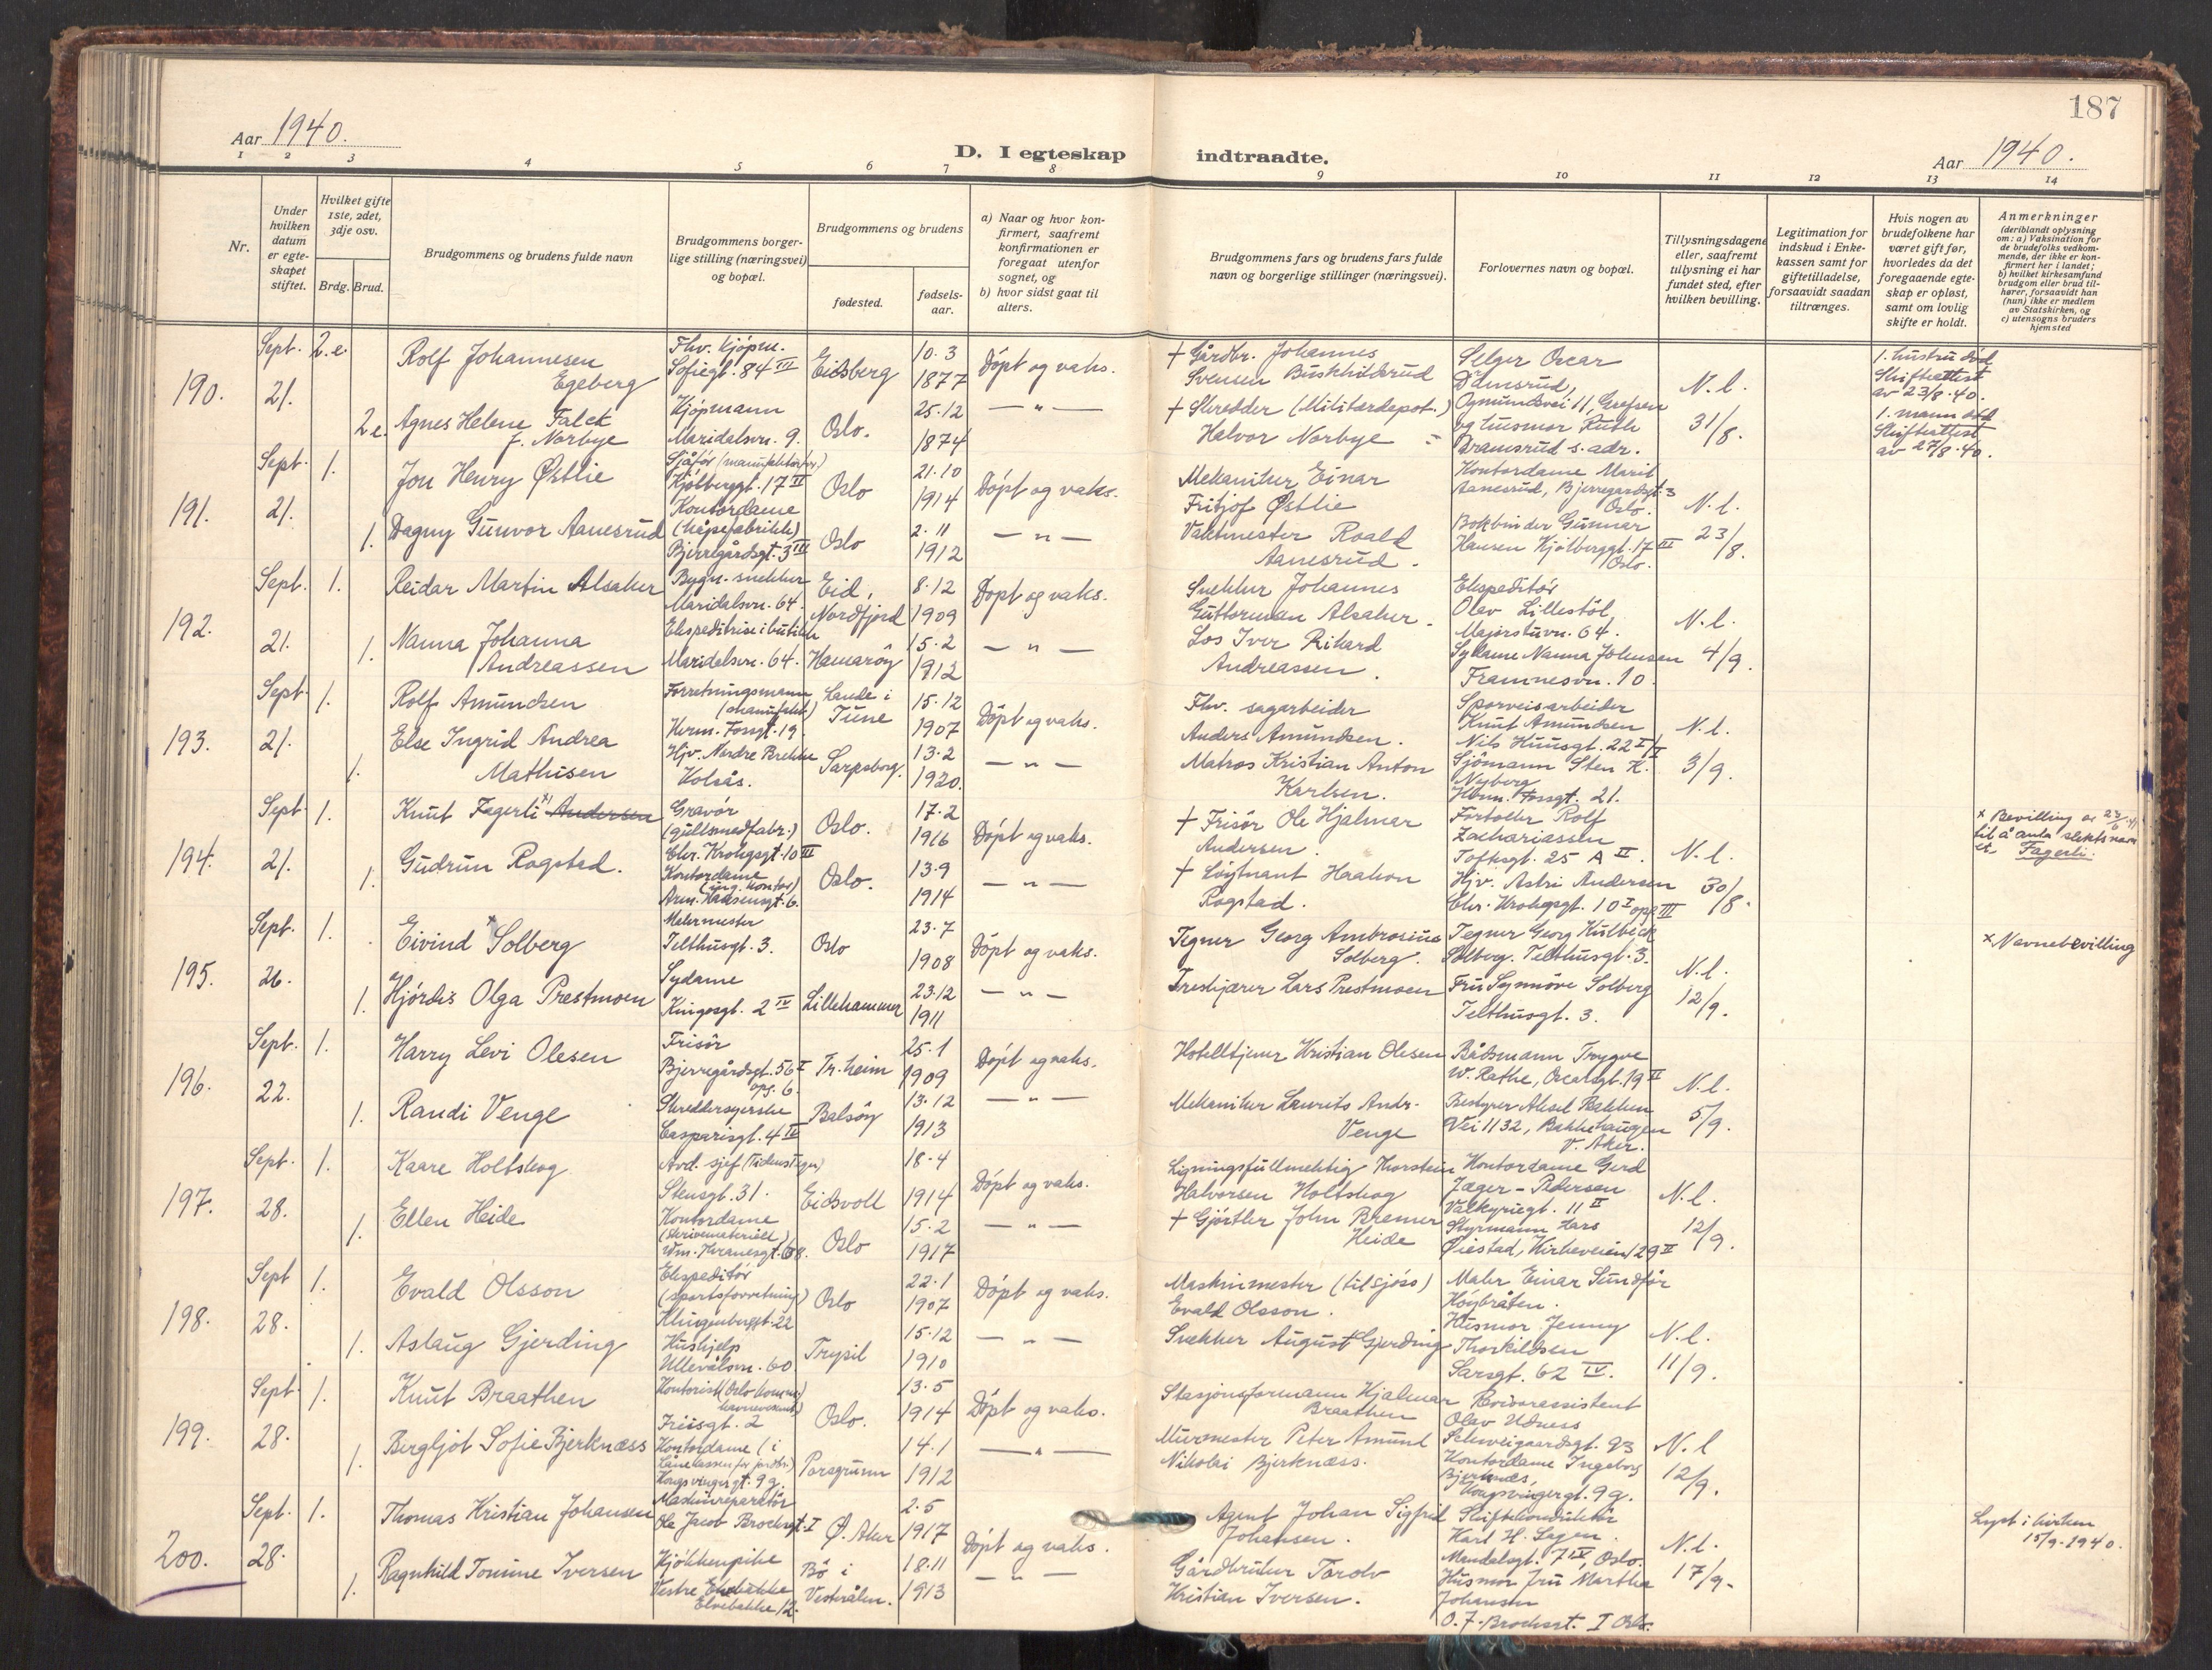 187
Aar 1940.
D. I egteskap indtraadte.
Aar 1940.
1 2 3 4 5 6 7 8 9 10 11 12 13 14
Nr.
Under hvilken datum er egteskapet stiftet.
Hvilket gifte 1ste, 2det, 3dje osv.
Brdg. Brud.
Brudgommens og brudens fulde navn
Brudgommens borgerlige stilling (næringsvei) og bopæl.
Brudgommens og brudens
fødested.
fødselsaar.
a) Naar og hvor konfirmert, saafremt konfirmationen er foregaat utenfor sognet, og
b) hvor sidst gaat til alters.
Brudgommens fars og brudens fars fulde navn og borgerlige stillinger (næringsvei).
Forlovernes navn og bopæl.
Tillysningsdagene eller, saafremt tillysning ei har fundet sted, efter hvilken bevilling.
Legitimation for indskud i Enkekassen samt for giftetilladelse, forsaavidt saadan tiltrænges.
Hvis nogen av brudefolkene har været gift før, hvorledes da det foregaaende egteskap er opløst, samt om lovlig skifte er holdt.
Anmerkninger
(deriblandt oplysning om: a) Vaksination for de brudefolks vedkommende, der ikke er konfirmert her i landet;
b) hvilket kirkesamfund brudgom eller brud tilhører, forsaavidt han (hun) ikke er medlem av Statskirken, og
c) utensogns bruders hjemsted
190.
Sept. 21.
2.e.
Rolf Johannesen Egeberg
Fhv. kjøpm.
Sofiegt. 84 III
Eidsberg
10.3 1877
Döpt og vaks.
† Gårdbr. Johannes Svensen Buskhilsrud
Selger Oscar
Ogmundsvei 11, Grefsen
N.l.
31/8.
1. hustru död
Skifteattest av 23/8.40.
2e.
Agnes Helene Falck f. Norbye
Kjöpmann
Maridalsvn. 9.
Oslo.
25.12 1874
— " —
† Skredder (Militærdepot.) Halvor Norbye
og husmor Ruth
Dramsrud s. adr.
1. mann död
Skifteattest av 27/8.40.
191.
Sept. 21.
1.
Jon Henry Østlie
Sjåför
Kjölberggt. 17 II
Oslo
21.10 1914
Döpt og vaks.
Mekaniker Einar Fritjof Østlie
Kontordame Marit Aanesrud, Bjerregaardsgt. 3 Oslo.
N.l.
23/8.
1.
Dagny Gunvor Aanesrud
Kontordame
(såpefabrikk)
Bjerregårdsgt. 3 III
Oslo
2.11 1912
— " —
Vaktmester Roald Aanesrud.
Bokbinder Gunnar Hansen Kjölberggt. 17 III Oslo.
192.
Sept. 21.
1.
Reidar Martin Alsaker
Bygn. snekker
Maridalsvn. 64.
Eid, Nordfjord
8.12 1909
Döpt og vaks.
Snekker Johannes Guttorman Alsaker.
Ekspeditör Olav Lillestöl
Majorstuvn. 64.
N.l.
4/9.
1.
Nanna Johanna Andreassen
Ekspeditrise i butikk
Maridalsvn. 64.
Hamaröy
15.2 1913
— " —
Los Iver Rikard Andreassen.
Sydame Nanna Johnsen
Framnesvn. 10.
193.
Sept. 21.
1.
Rolf Amundsen
Forretningsmann
Herm. Fossgt. 19.
Lande i Tune
15.12 1907
Döpt og vaks.
Fhv. sagarbeider Anders Amundsen.
Sporveisarbeider Knut Amundsen
Nils Huusgt. 22 I/II
N.l.
3/9.
1.
Else Ingrid Andrea Mathisen
Hjv. Nordre Brekke Kolsås.
Sarpsborg.
13.2 1920.
— " —
Matros Kristian Anton Karlsen.
Sjömann Sten K. Nyberg
Herm. Fossgt. 21.
194.
Sept. 21.
1.
Knut Fagerli x) Andersen
Gravör
(gullsmedfabr.)
Chr. Krohgsgt. 10 III
Oslo.
17.2 1916
Döpt og vaks.
† Frisör Ole Hjalmar Andersen.
Fortoller Rolf Zachariassen
Toftesgt. 25 A II.
N.l.
30/8.
x Bevilling av 23/6
til å anta slektsnavnet Fagerli.
1.
Gudrun Rogstad.
Kontordame
(ing. kontor)
Arm. Hansensgt. 6.
Oslo.
13.9 1914
— " —
† Löytnant Haakon Rogstad.
Hjv. Astri Andersen
Chr. Krohgsgt. 10 I opg III
195.
Sept. 26.
1.
Eivind x Solberg
Malermester
Telthusgt. 3.
Oslo
23.7 1908
Döpt og vaks.
Tegner Georg Ambrosius Solberg.
Tegner Georg Kulbeck Solberg. Telthusgt. 3.
N.l.
12/9.
x Navnebevilling
1.
Hjördis Olga Prestmoen
Sydame
Kingosgt. 2 IV
Lillehammer
23.12 1911
— " —
Treskjærer Lars Prestmoen
Fru Synnöve Solberg
Telthusgt. 3.
196.
Sept. 22.
1.
Harry Levi Olesen
Frisör
Bjerregårdsgt. 56 I opg. 6.
Tr.heim
25.1 1909
Döpt og vaks.
Hotelltjener Kristian Olesen
Båtsmann Trygve W. Rathe, Oscarsgt. 19 II
N.l.
5/9.
1.
Randi Venge
Skreddersyerske
Casparisgt. 4 IV
Balsöy
13.12 1913
— " —
Mekaniker Laurits Andr. Venge
Bestyrer Aksel Bakken
Vei 1132, Bakkehaugen V. Aker.
197.
Sept. 28.
1.
Kaare Holtskog
Avd. sjef (Tidens Tegn)
Stensgt. 31.
Eidsvoll
18.4 1914
Döpt og vaks.
Ligningsfullmektig Thorstein Halvorsen Holtskog
Kontordame Gerd Jæger-Pedersen
Valkyriegt. 11 II
N.l.
12/9.
1.
Ellen Heide
Kontordame
(skrivemateriell)
Wm. Thranesgt. 68.
Oslo
15.2 1917
— " —
† Gjörtler John Bremer Heide
Styrmann Lars Øiestad, Kirkeveien 129 II
198.
Sept 28.
1.
Evald Olsson
Ekspeditör
(sportsforretning)
Klingenberggt. 22
Oslo
22.1 1907
Döpt og vaks.
Maskinmester (tilsjøss) Evald Olsson.
Maler Einar Sundför
Höybråten.
N.l.
11/9.
1.
Aslaug Gjerding
Hushjelp
Ullevålsvn. 60
Trysil
15.12 1910
— " —
Snekker August Gjerding
Husmor Jenny Thorkildsen
Sarsgt. 62 IV.
199.
Sept. 28.
1.
Knut Braathen
Kontorist (Oslo komm. havnevesent)
Friisgt. 2
Oslo.
13.5 1914
Döpt og vaks.
Stasjonsformann Hjalmar Braathen
Revisorassistent Olav Udness
Schweigaardsgt. 93
N.l
12/9.
1.
Bergljot Sofie Bjerknæss
Kontordame (i Lånekassen for jordbr.)
Kongsvingergt. 9 g.
Porsgrunn
14.1 1912
— " —
Murmester Peter Amund Nikolai Bjerknæss.
Kontordame Ingeborg Bjerknæs,
Kongsvingergt. 9 g.
200.
Sept. 28.
1.
Thomas Kristian Johansen
Maskinreparatör
Ole Jacob Brochsgt. I
Ø. Aker
2.5 1917
Döpt og vaks.
Agent Johan Sigfrid Johansen.
Skiftekonduktör Karl H. Segen.
Mandalsgt. 7 IV, Oslo.
N.l.
17/9.
Lyst i kirken 15/9.1940.
1.
Ragnhild Tomine Iversen
Kjökkenpike
Vestre Elvebakke
Elvebakke 12.
Bö i Vesterålen.
18.11 1913
— " —
Gårdbruker Torolv Kristian Iversen.
Husmor fru Martha Johansen
O. J. Brochsgt. I Oslo.